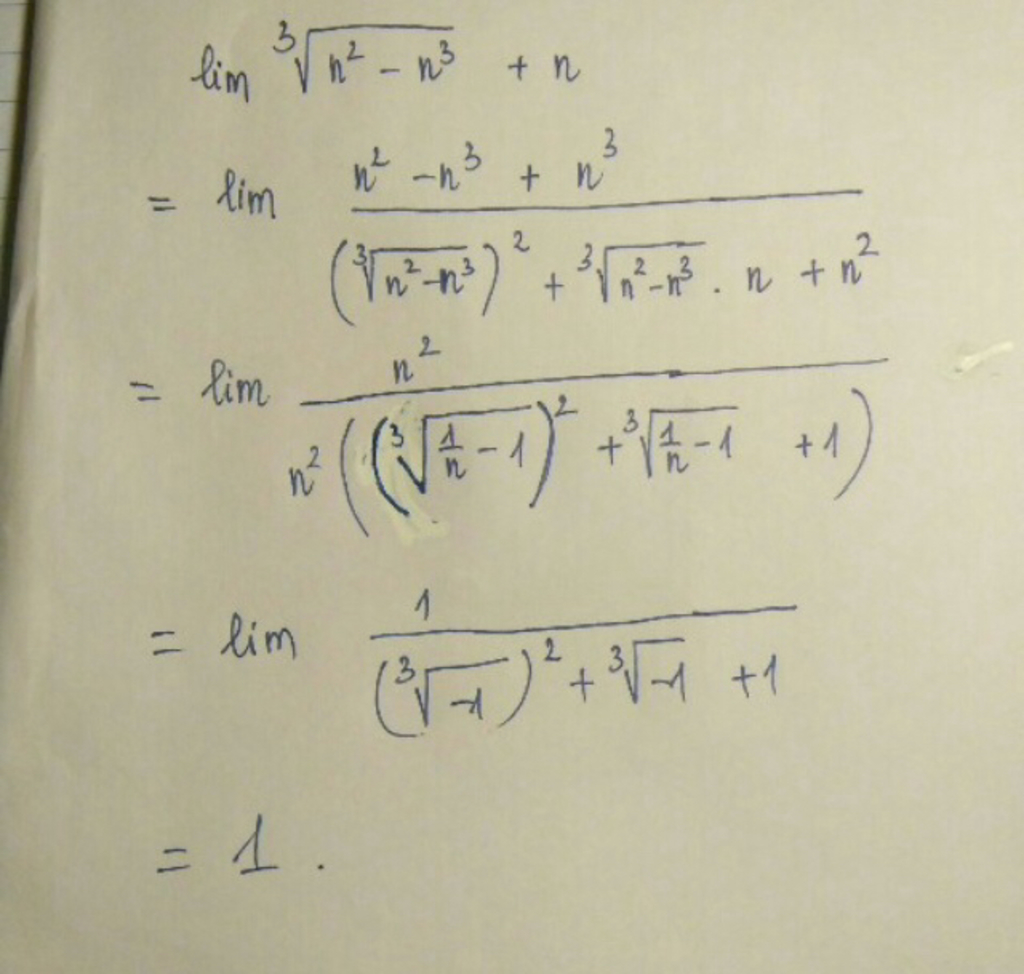 lim ∛(n² − n³) + n
= lim (n² − n³ + n³) / ((∛(n² − n³))² + ∛(n² − n³) . n + n²)
= lim n² / (n² ((∛(1/n − 1))² + ∛(1/n − 1) + 1))
= lim 1 / ((∛−1)² + ∛−1 + 1)
= 1 .